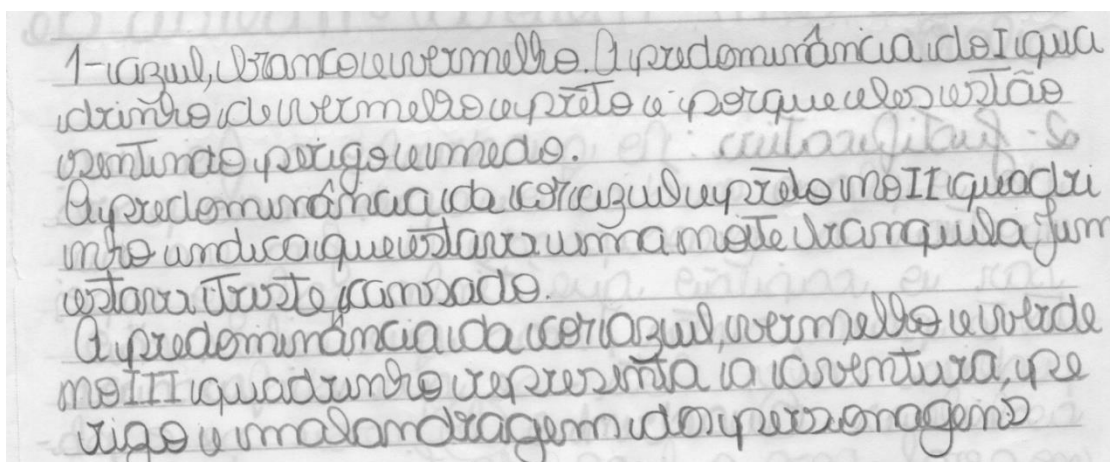 1- azul, branco e vermelho. A predominância do I qua
drinho de vermelho e preto é porque eles estão
sentindo perigo e medo.
A predominância da cor azul e preto no II quadri
nho indica que estava uma noite tranquila Jum
estava triste, cansado.
A predominância da cor azul, vermelho e verde
no III quadrinho representa a aventura, pe
rigo e malandragem dos personagens